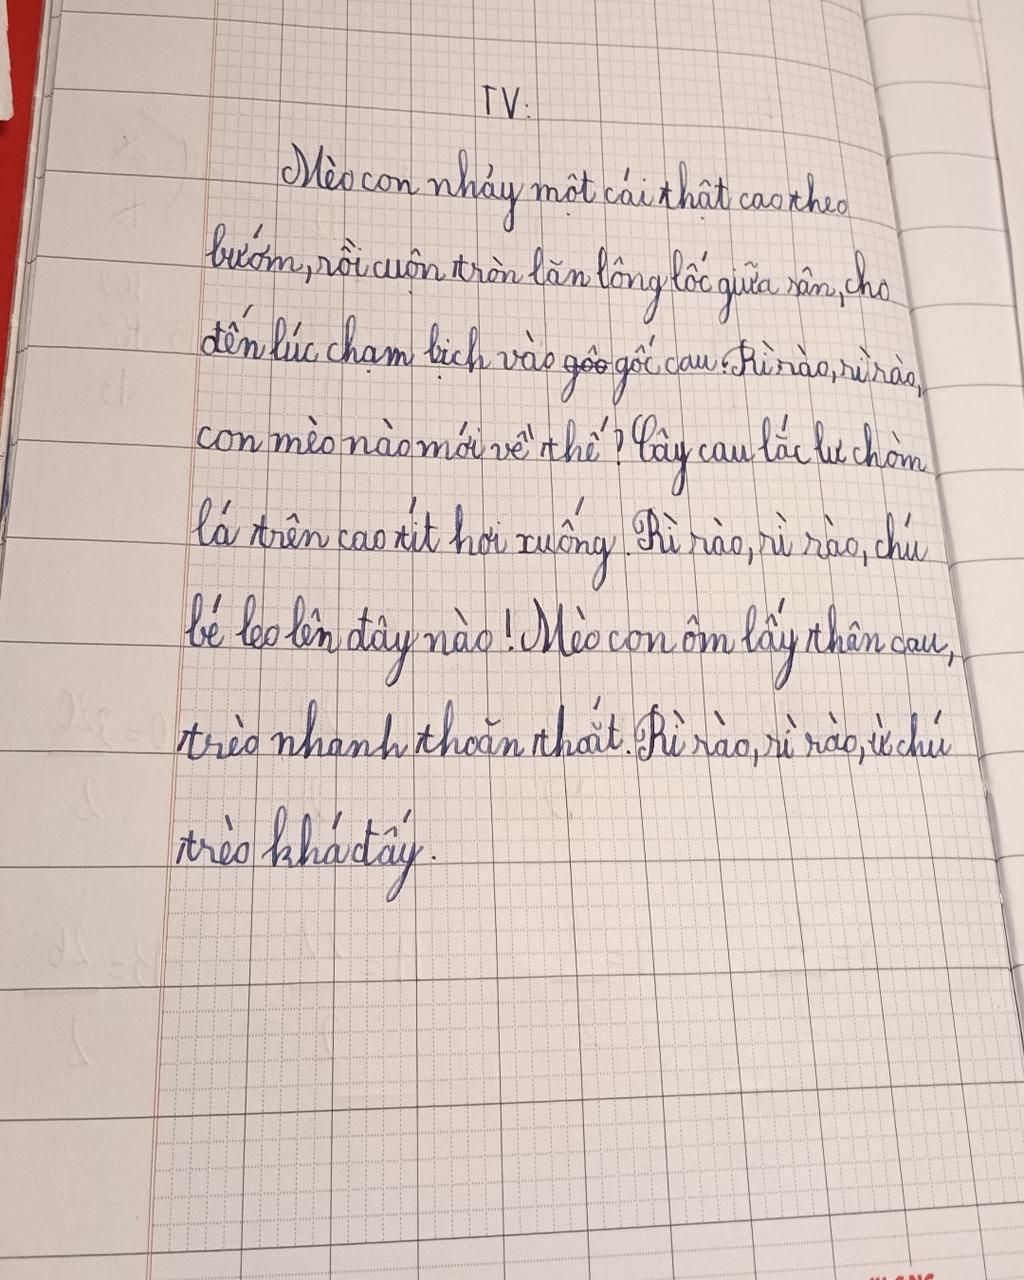 TV:
Mèo con nhảy một cái thật cao theo
bướm, rồi cuộn tròn lăn lông lốc giữa sân, cho
đến lúc chạm bịch vào gốc cau. Rì rào, rì rào,
con mèo nào mới về thế? Cây cau lắc lư chòm
lá trên cao tít hỏi xuống. Rì rào, rì rào, chú
bé leo lên đây nào! Mèo con ôm lấy thân cau,
trèo nhanh thoăn thoắt. Rì rào, rì rào, ừ chú
trèo khá đấy.